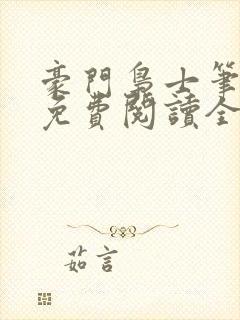 豪門梟士筆
免費閱讀全
茹言